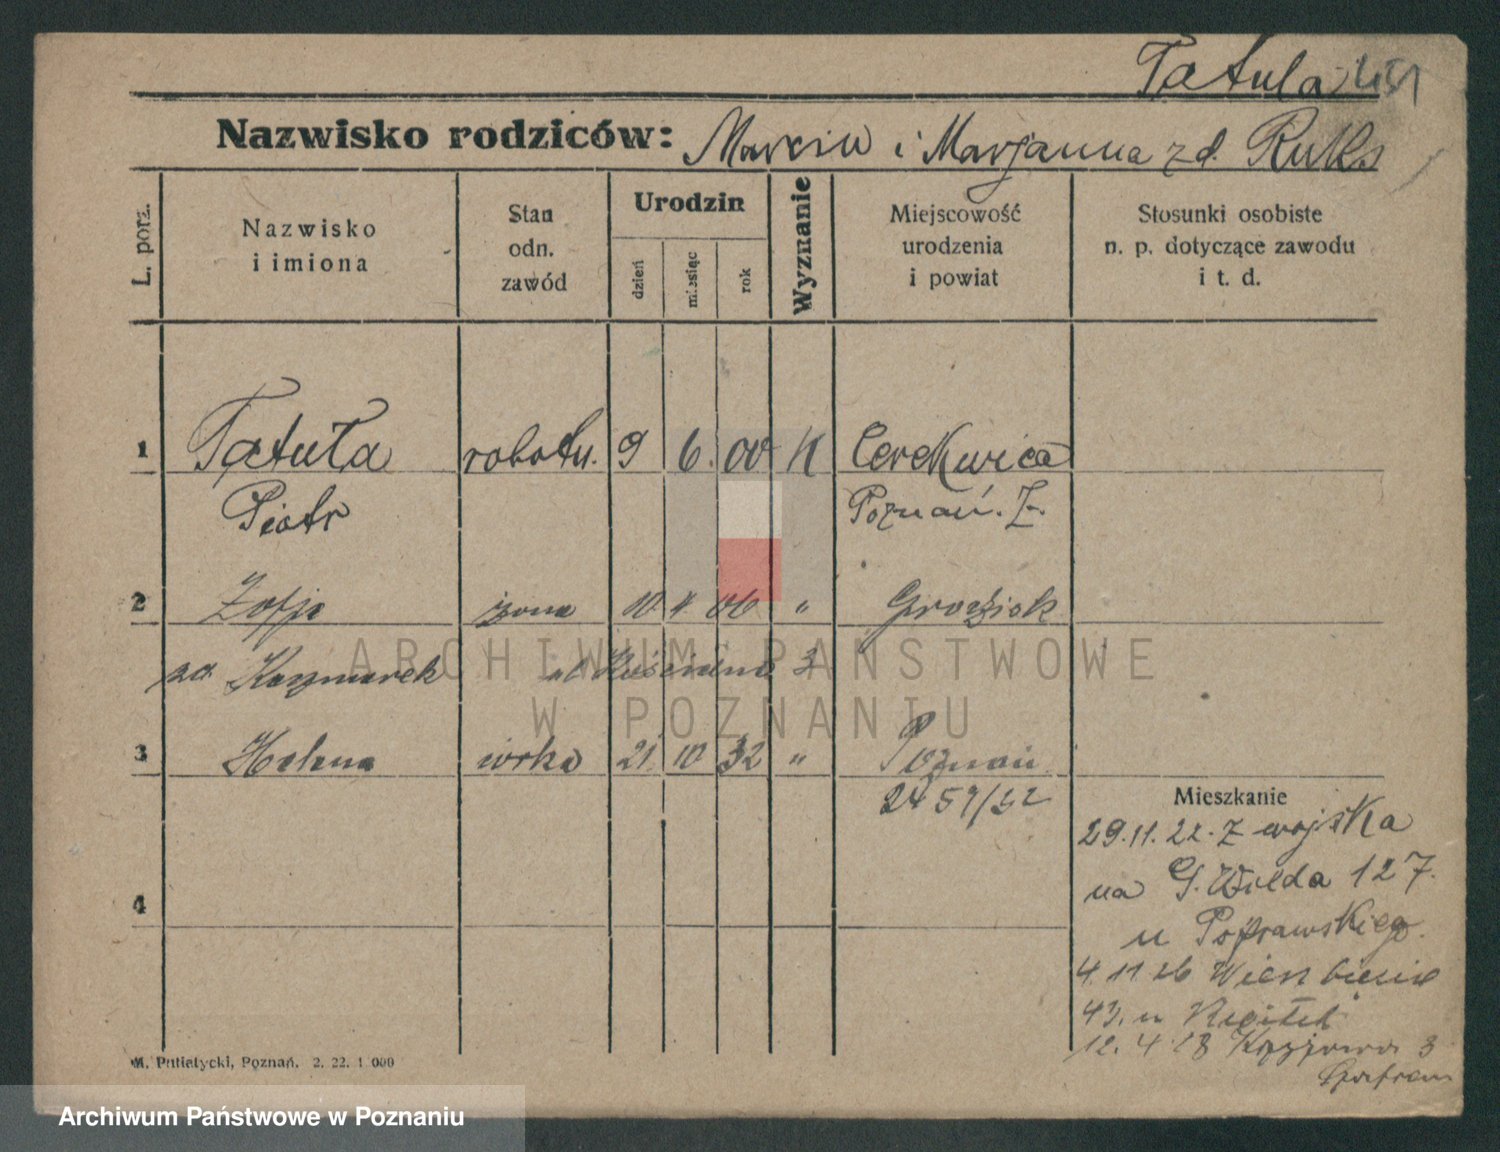 Tatula 451
Nazwisko rodziców: Marcin i Marjanna zd. Ruks
L. porz.
Nazwisko
i imiona
Stan
odn.
zawód
Urodzin
dzień
miesiąc
rok
Wyznanie
Miejscowość
urodzenia
i powiat
Stosunki osobiste
n. p. dotyczące zawodu
i t. d.
1 Tatuła robotn. 9 6. 00 K Cerekwica
Piotr Poznań. Z.
2 Zofja żona 10 4 06 " Grodzisk
zd. Kaczmarek
3 Helena córka 21 10 32 " Poznań
2459/32
4
Mieszkanie
29.11.22. z wojska
na G. Wilda 127.
u Poprawskiego.
4.11.26 Wierzbięcie
43. u
12. 4 28 3
M. Putiatycki, Poznań. 2. 22. 1 000
ARCHIWUM PAŃSTWOWE
W POZNANIU
Archiwum Państwowe w Poznaniu